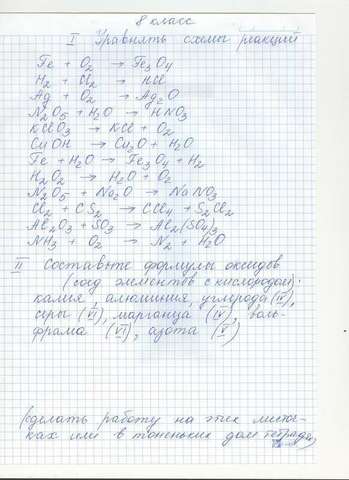 8 класс
I Уравнять схемы реакций
Fe + O2 → Fe3O4
H2 + Cl2 → HCl
Ag + O2 → Ag2O
N2O5 + H2O → HNO3
KClO3 → KCl + O2
CuOH → Cu2O + H2O
Fe + H2O → Fe3O4 + H2
H2O2 → H2O + O2
N2O5 + Na2O → NaNO3
Cl2 + CS2 → CCl4 + S2Cl2
Al2O3 + SO3 → Al2(SO4)3
NH3 + O2 → N2 + H2O
II Составьте формулы оксидов
(соед элементов с кислородом):
калия, алюминия, углерода (IV),
серы (VI), марганца (IV), воль-
фрама (VI), азота (V)
(сделать работу на этих листоч-
ках или в тоненьких дом тетрадях)